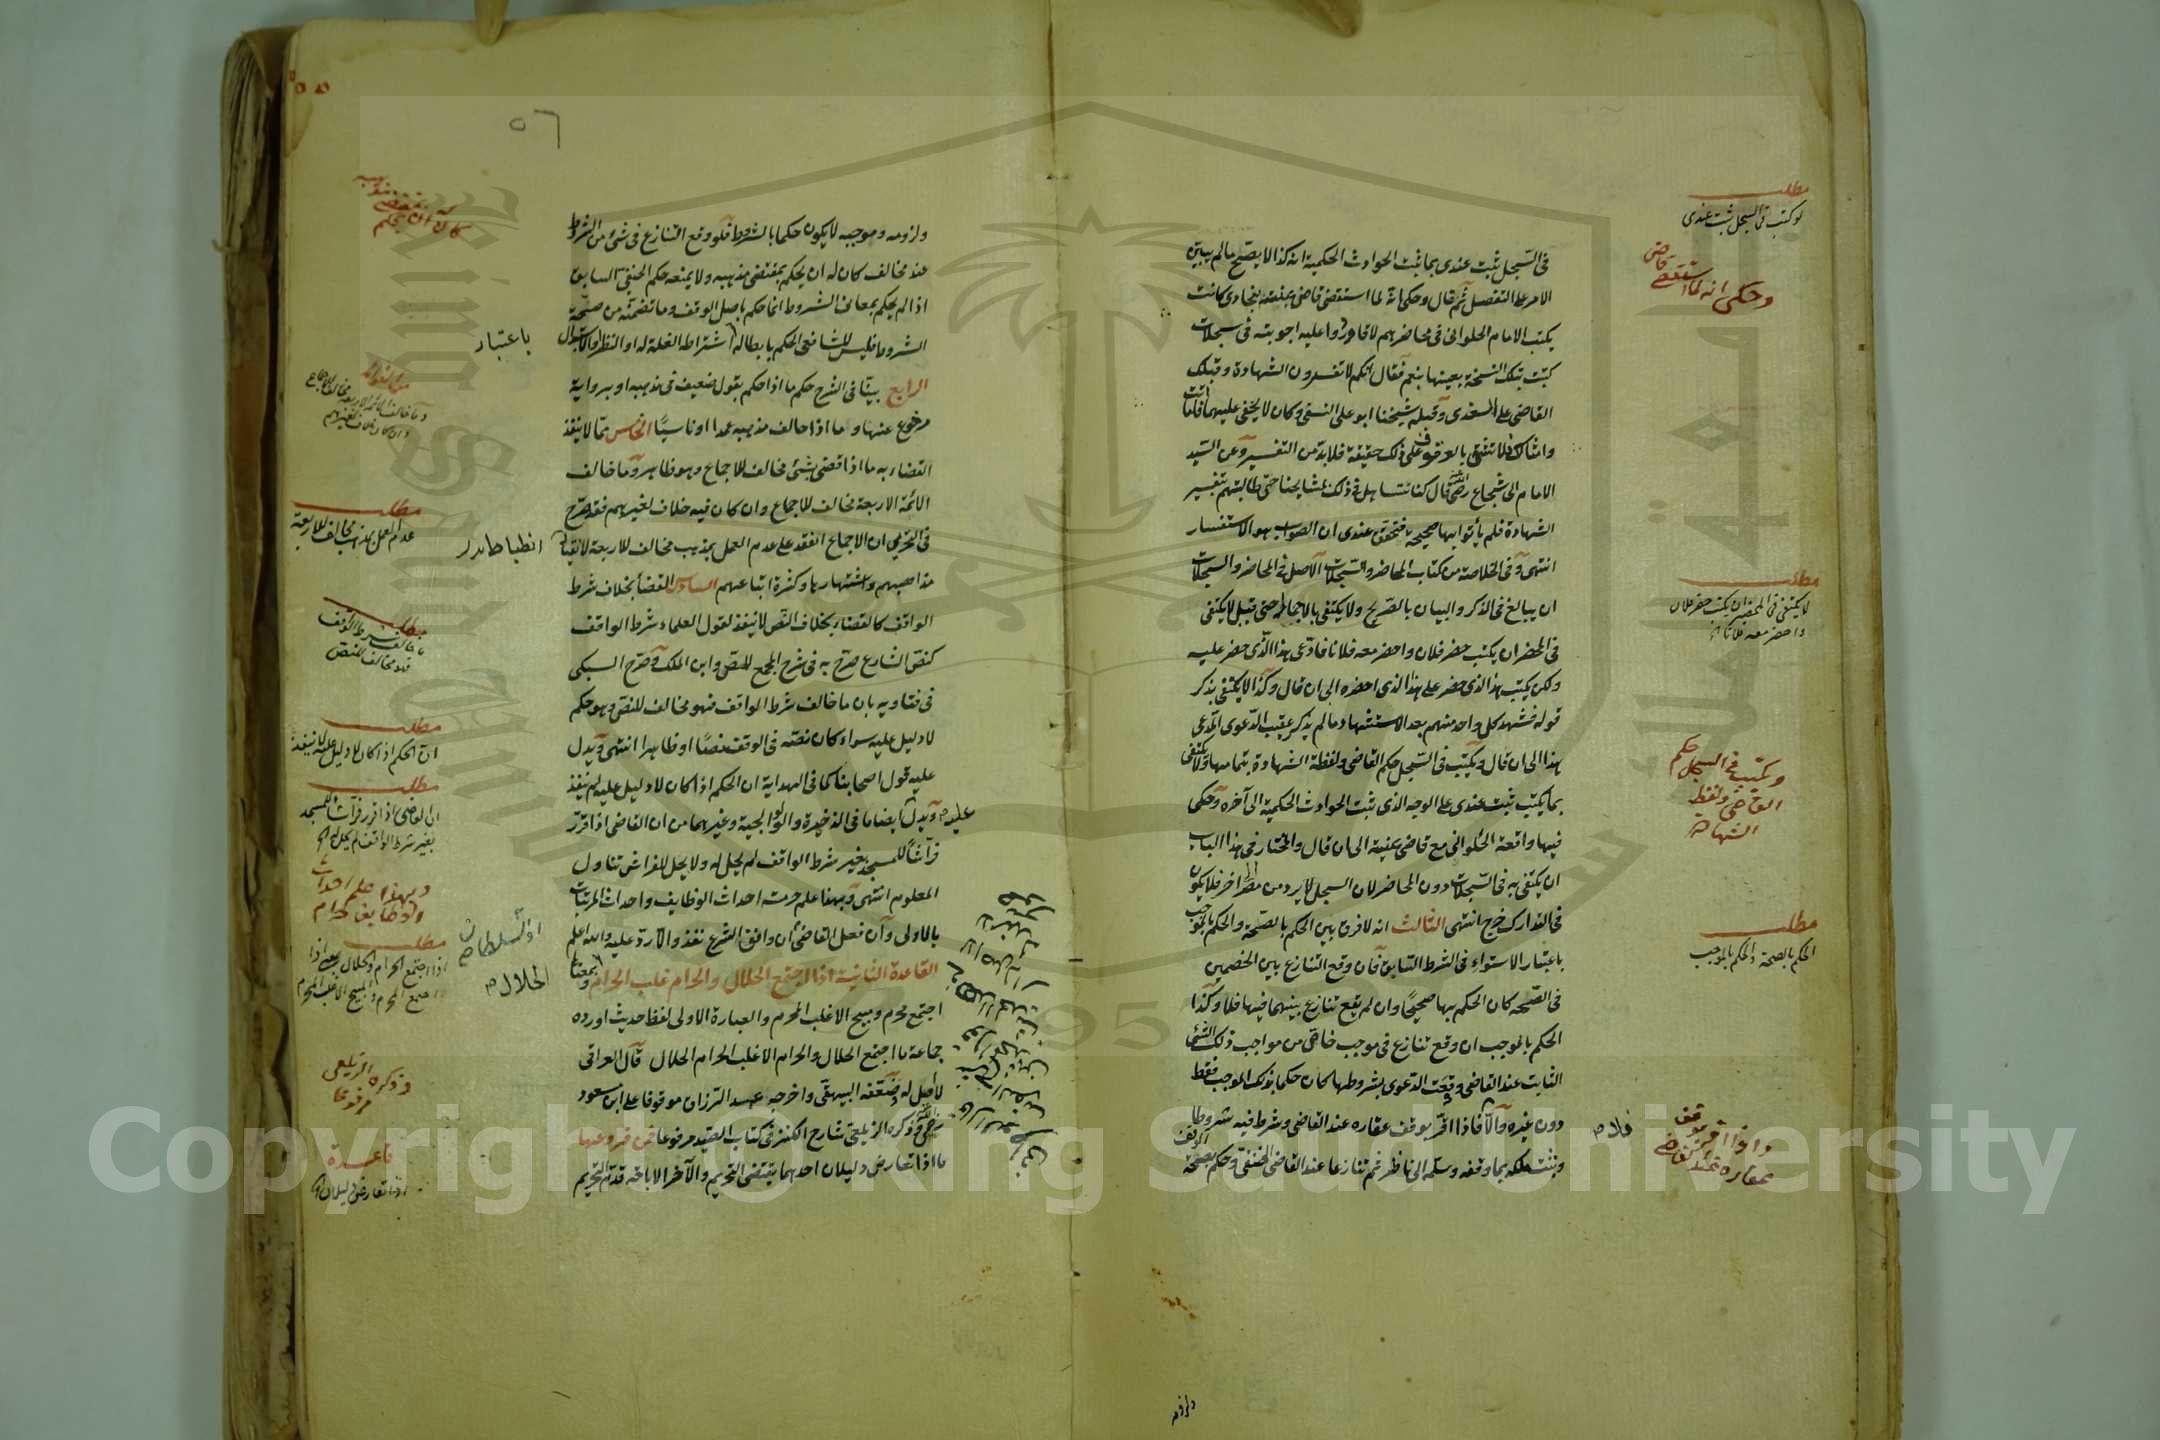 في السجل ثبت عندي بما ثبت الحوادث الحكمية انه كذا لا يصح ما لم يبين
الامر على التفصل ثم قال وحكى انه لما استقضى قاضي عنبسة ببخارى كانت
يكتب الامام الحلواني في محاضرهم لا فاوردوا عليه اجوبته في سجلات
كتبت بتلك النسخة بعينها بنعم فقال انكم لا تفسرون الشهادة وقبلك
القاضي على السغدي وقبله شيخنا ابو علي النسفي وكان لا يخفى عليهما فاما انت
وامثالك فلا تثق بالوقوف على ذلك حقيقة فلا بد من التفسير وعن السيد
الامام ابي شجاع رضي قال كنا نتساهل في ذلك لمشايخنا حتى طالبتهم بتفسير
الشهادة فلم يأتوا بها صحيحة فتحقق عندي ان الصواب هو الاستفسار
انتهى وفي الخلاصة من كتاب المحاضر والسجلات الاصل في المحاضر والسجلات
ان يبالغ في الذكر والبيان بالصريح ولا يكتفى بالاجمال حتى قيل لا يكتفى
في المحضر ان يكتب حضر فلان واحضر معه فلانا فادعى هذا الذي حضر عليه
ولكن يكتب هذا الذي حضر على هذا الذي احضره الى ان قال وكذا لا يكتفى بذكر
قوله فشهد كل واحد منهم بعد الاستشهاد ما لم يذكر عقيب الدعوى المدعي
هذا الى ان قال ويكتب في السجل حكم القاضي ولفظة الشهادة بتمامها ولا يكتفى
بما يكتب ثبت عندي على الوجه الذي ثبت الحوادث الحكمية الى آخره وحكى
فيها واقعة الحلواني مع قاضي عنبسة الى ان قال والمختار في هذا الباب
ان يكتفى به في السجلات دون المحاضر لان السجل لا يرد من مصر الى آخر فلا يكون
في التدارك حرج انتهى الثالث انه لا فرق بين الحكم بالصحة والحكم بالموجب
باعتبار الاستواء في الشرط السابق فان وقع التنازع بين الخصمين
في الصحة كان الحكم بها صحيحا وان لم يقع تنازع بينهما فيها فلا وكذا
الحكم بالموجب ان وقع تنازع في موجب خاص من مواجب ذلك الشئ
الثابت عند القاضي ووقعت الدعوى بشروطها كان حكما بذلك الموجب فقط
دون غيره والا فلا فاذا اقر بوقف عقاره عند القاضي وشرط فيه شروطا
وثبت ملكه بما وقفه وسلمه الى ناظر ثم تنازعا عند القاضي الحنفي وحكم بصحة الوقف
ولزومه
مطلب
لو كتب في السجل ثبت عندي
وحكى انه لما استقضى قاضي
مطلب
لا يكتفى في المحضر ان يكتب حضر فلان
واحضر معه فلانا
ويكتب في السجل حكم
القاضي ولفظ
الشهادة
مطلب
الحكم بالصحة والحكم بالموجب
فلا
واذا اقر بوقف
عقاره عند القاضي
٥٦
ولزومه وموجبه لا يكون حكما بالشروط فلو وقع التنازع في شئ من الشروط
عند مخالف كان له ان يحكم بمقتضى مذهبه ولا يمنعه حكم الحنفي السابق
اذا لم يحكم بمعاني الشروط انما حكم باصل الوقف وما تضمنه من صحة
الشروط فليس للشافعي الحكم بابطال اشتراط الغلة له او النظر او الاستبدال
الرابع بينا في الشرح حكم ما اذا حكم بقول ضعيف في مذهبه او برواية
مرجوع عنها وما اذا خالف مذهبه عمدا او ناسيا الخامس مما لا ينفذ
القضاء به ما اذا قضى بشئ مخالف للاجماع وهو ظاهر وما خالف
الائمة الاربعة مخالف للاجماع وان كان فيه خلاف لغيرهم فقد صرح
في التحرير ان الاجماع انعقد على عدم العمل بمذهب مخالف للاربعة لانضباط
مذاهبهم واشتهارها وكثرة اتباعهم السادس القضا بخلاف شرط
الواقف كالقضاء بخلاف النص لا ينفذ لقول العلماء شرط الواقف
كنص الشارع صرح به في شرح المجمع للمص وابن الملك وصرح السبكي
في فتاويه بان ما خالف شرط الواقف فهو مخالف للنص وهو حكم
لا دليل عليه سواء كان نصه في الوقف نصا او ظاهرا انتهى ويدل
عليه قول اصحابنا كما في الهداية ان الحكم اذا كان لا دليل عليه لم ينفذ
ويدل عليه ايضا ما في الذخيرة والولوالجية وغيرهما من ان القاضي اذا قرر
فراشا للمسجد بغير شرط الواقف لم يحل له ولا يحل للفراش تناول
المعلوم انتهى وبهذا علم حرمة احداث الوظايف واحداث المرتبات
بالاولى وان فعل القاضي ان وافق الشرع نفذ والا رد عليه والله اعلم
القاعدة الثانية اذا اجتمع الحلال والحرام غلب الحرام وبمعناها ما
اجتمع محرم ومبيح الا غلب المحرم والعبارة الاولى لفظ حديث اورده
جماعة ما اجتمع الحلال والحرام الا غلب الحرام الحلال قال العراقي
لا اصل له وضعفه البيهقي واخرجه عبد الرزاق موقوفا على ابن مسعود
رضي وذكره الزيلعي شارح الكنز في كتاب الصيد مرفوعا فمن فروعها
ما اذا تعارض دليلان احدهما يقتضي التحريم والآخر الاباحة قدم التحريم
كان له ان يحكم
بمقتضى مذهبه
باعتبار
وما خالف الائمة الاربعة مخالف للاجماع
وان كان فيه خلاف لغيرهم
مطلب
عدم العمل بمذهب مخالف للاربعة
مطلب
ما خالف شرط الواقف
فهو مخالف للنص
مطلب
ان الحكم اذا كان لا دليل عليه لا ينفذ
مطلب
ان القاضي اذا قرر فراشا للمسجد
بغير شرط الواقف لم يحل له
وبهذا علم احداث
الوظايف حرام
او السلطان
الحلال
مطلب
اذا اجتمع الحرام والحلال بمعنى اذا
اجتمع المحرم والمبيح الا غلب المحرم
وذكره الزيلعي
مرفوعا
قاعدة
اذا تعارض دليلان
Copyright © King Saud University
1957